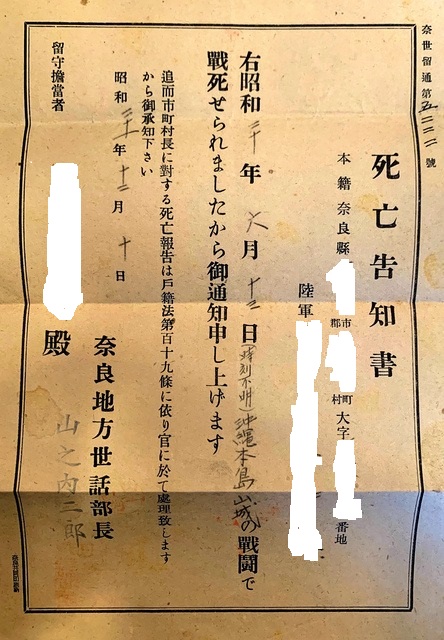 奈世留通第五二二二號
死亡告知書
本籍 奈良縣 郡市 村町 大字 番地
陸軍
右昭和二十年六月十三日(時刻不明)沖縄本島山城の戰鬪で
戰死せられましたから御通知申し上げます
追而市町村長に對する死亡報告は戶籍法第百十九條に依り官に於て處理致します
から御承知下さい
昭和 年十二月十日
奈良地方世話部長
山之内二郎
留守擔當者
殿